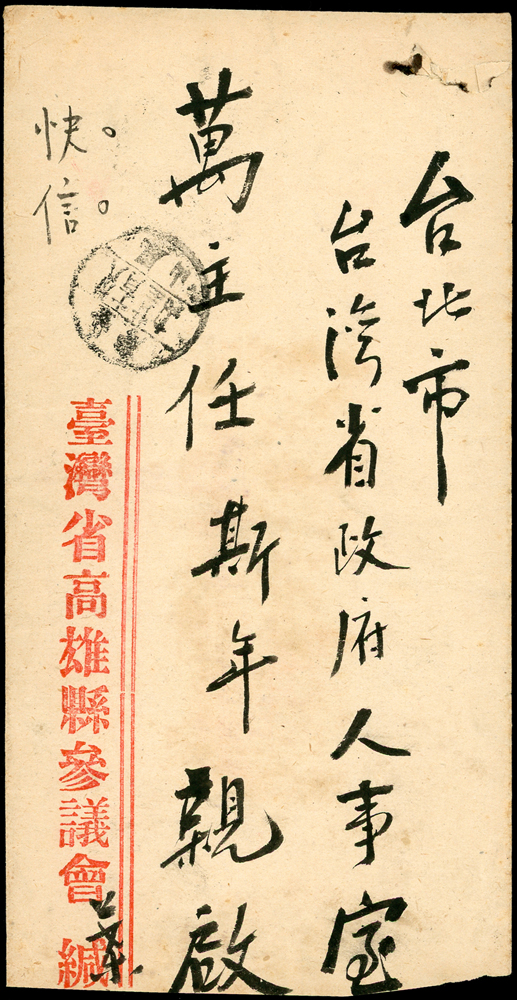 台北市
台灣省政府人事室
萬主任斯年親啟
快。
信。
臺灣省高雄縣參議會 緘